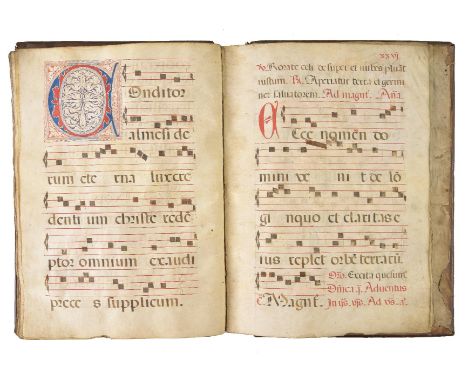 Onditor
almesi de
rum ete rna lux cre
denti um christe redē
ptor omnium exaudi
prece s supplicum.
xxvj
℣ Rorate celi de super et nubes pluāt
iustum. ℟. Aperiatur terra et germi
net saluatorem. Ad magnif. Aña.
Ecce nomen do
mini ve ni t de lō
gi nquo et claritas e
ius replet orbē terrarū
Excita quesum
Magnif. Dñica Aduentus